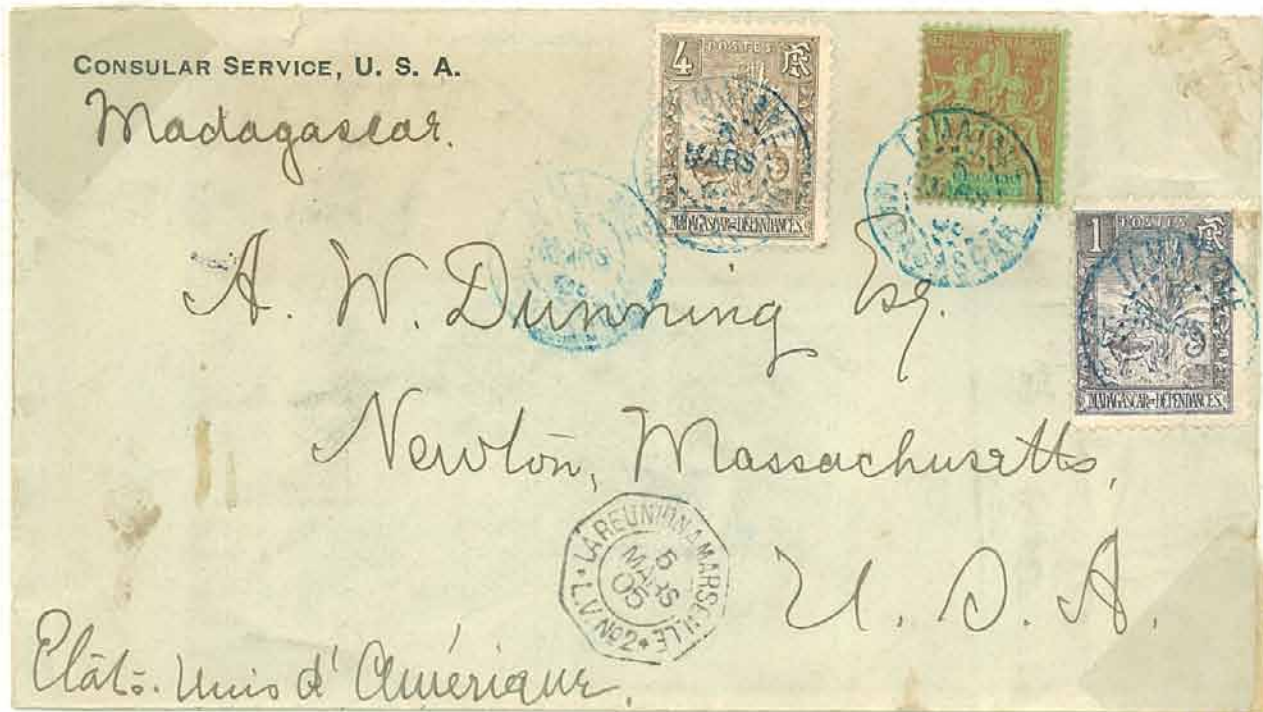 CONSULAR SERVICE, U. S. A.
Madagascar.
4 POSTES RF
MARS
MADAGASCAR=DÉPENDANCES
TAMATAVE
MADAGASCAR
1 POSTES RF
MADAGASCAR=DÉPENDANCES
A. W. Dunning Esq.
Newton, Massachusetts,
U. S. A.
LA REUNION A MARSEILLE
5
MARS
05
* L.V. No2 *
États-Unis d'Amérique.